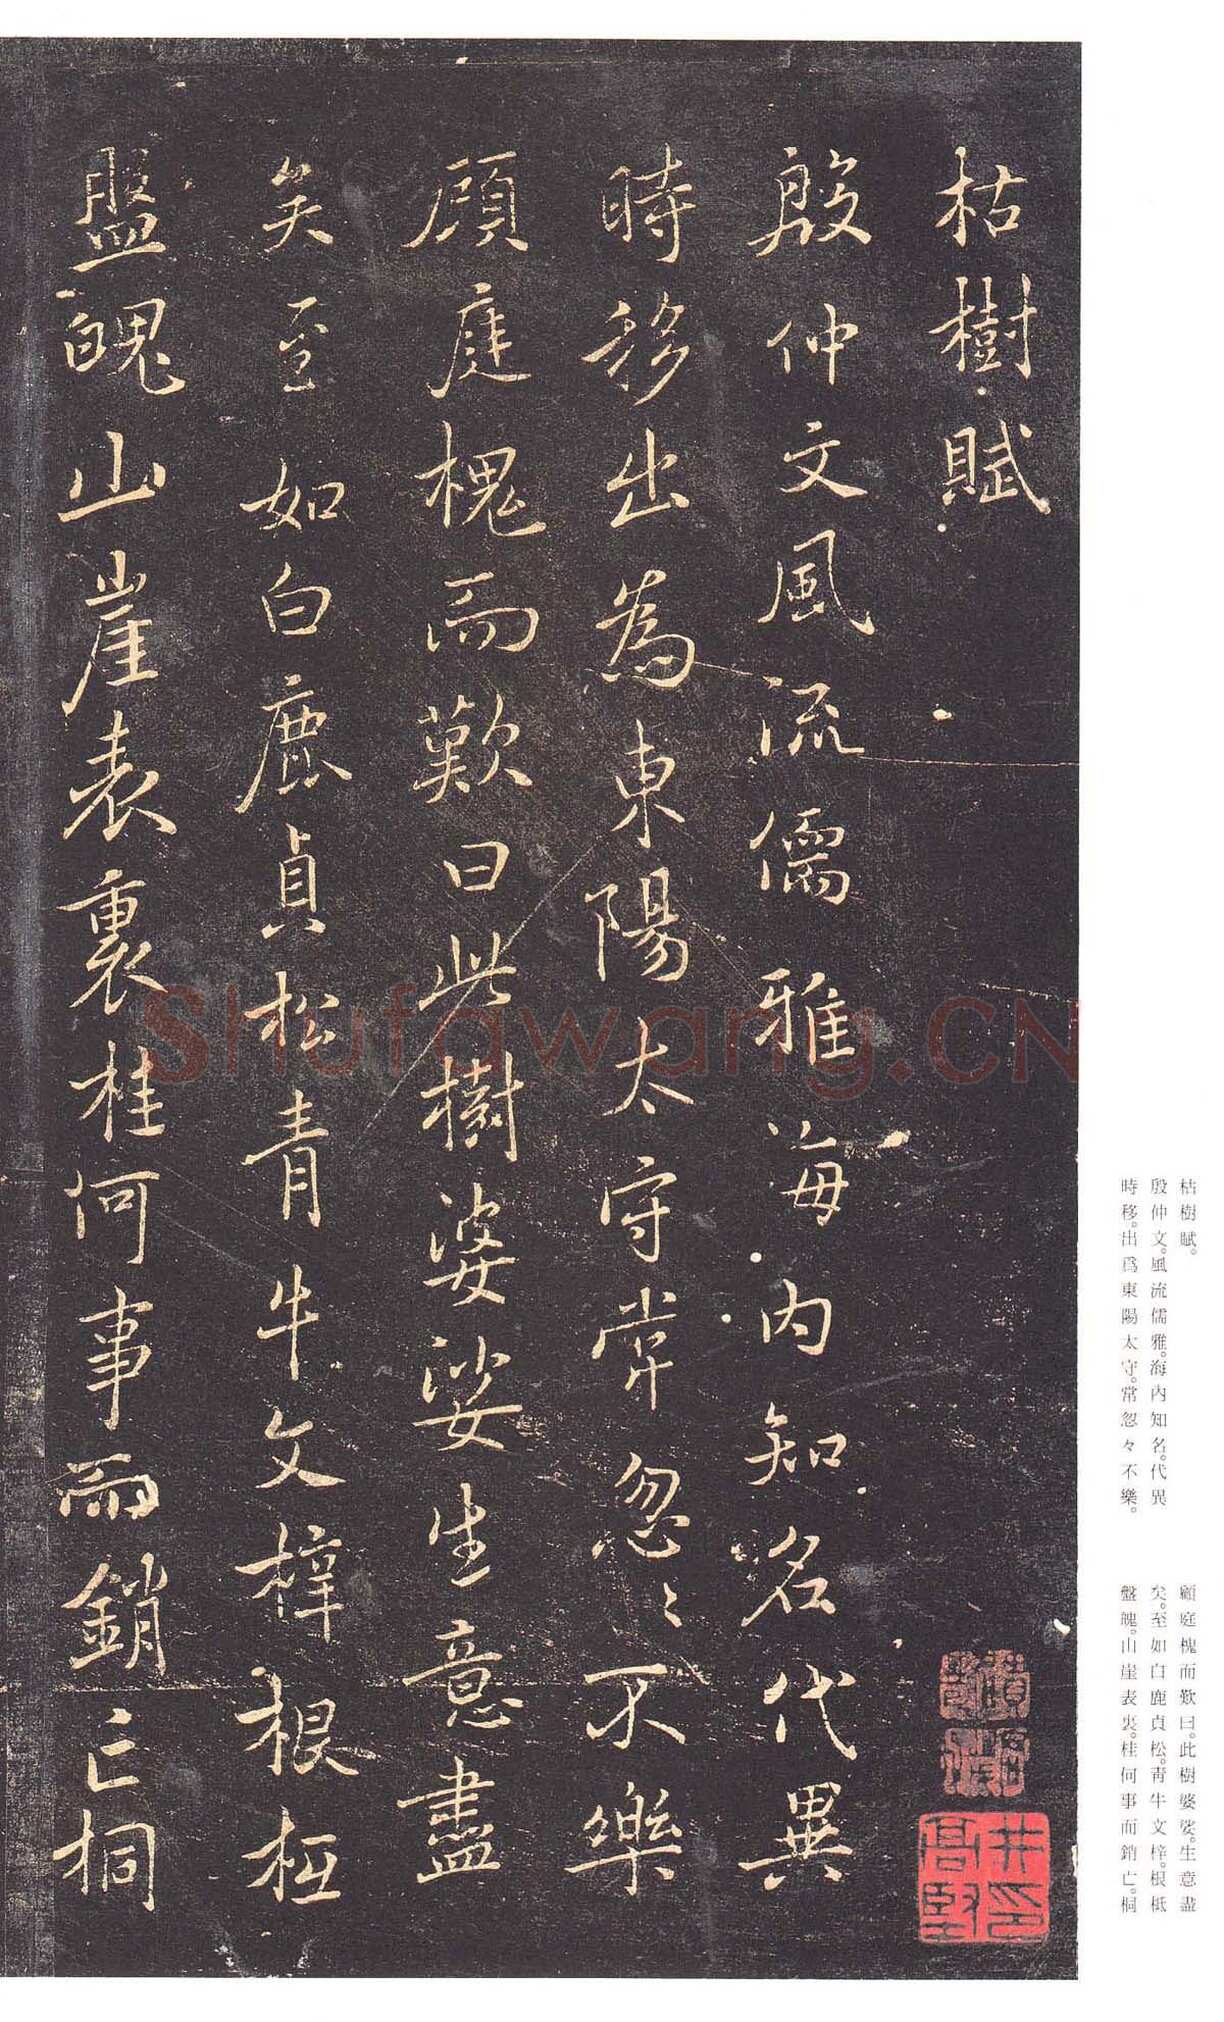 枯樹賦
殷仲文風流儒雅海内知名代異
時移出為東陽太守常忽〻不樂
顧庭槐而歎曰此樹婆娑生意盡
矣至如白鹿貞松青牛文梓根柢
盤魄山崖表裏桂何事而銷亡桐
枯樹賦。
殷仲文。風流儒雅。海内知名。代異
時移。出爲東陽太守。常忽々不樂。
顧庭槐而歎曰。此樹婆娑。生意盡
矣。至如白鹿貞松。青牛文梓。根柢
盤魄。山崖表裏。桂何事而銷亡。桐
Shufawang.CN